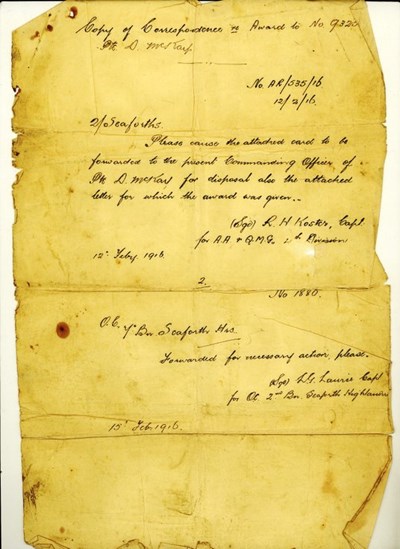 Copy of Correspondence re Award to No 9320
Pte D. McKay
No. AR/535/16
12/2/16.
2/Seaforths.
Please cause the attached card to be
forwarded to the present Commanding Officer of ..
Pte D. McKay for disposal also the attached
letter for which the award was given ..
(Sgd) R. H Capt
for A.A. & Q.M.G. Division
12' Feby 1916
2.
No 1880.
O.C. 7th Bn Seaforth Hrs
Forwarded for necessary action, please.
Sgd Laurie Capt
for OC 2nd Bn. Seaforth Highlanders
15' Feb. 1916.